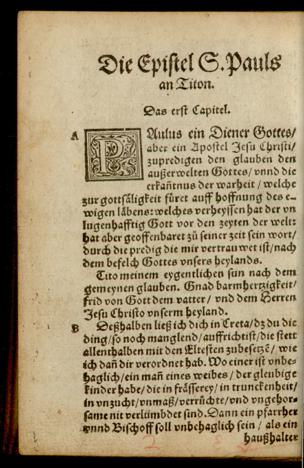 Die Epistel S. Pauls
an Titon.
Das erst Capitel.
A PAulus ein Diener Gottes/
aber ein Apostel Jesu Christi/
zupredigen den glauben den
außerwelten Gottes/ vnnd die
erkañtnus der warheit/ welche
zur gottsäligkeit füret auff hoffnung des e-
wigen läbens: welches verheyssen hat der vn
lugenhafftig Gott vor den zeyten der weltz
hat aber geoffenbaret zů seiner zeit sein wort/
durch die predig die mir vertrauwet ist/ nach
dem befelch Gottes vnsers heylands.
Tito meinem eygentlichen sun nach dem
gemeynen glauben. Gnad barmhertzigkeit/
frid von Gott dem vatter/ vnd dem Herren
Jesu Christo vnserm heyland.
B Deßhalben ließ ich dich in Creta/ dz du die
ding/ so noch manglend/ auffrichtist/ die stett
allenthalben mit den Eltesten zubesetzē/ wie
ich dañ dir verordnet hab. Wo einer ist vnbe-
haglich/ ein mañ eines weibes/ der gleubige
kinder habe/ die in frässerey/ in trunckenheit/
in vnzucht/ vnmaß/ verrüchte/ vnd vngehor-
same nit verlümbdet sind. Dann ein pfarrher
vnnd Bischoff soll vnbehaglich sein/ als ein
haußhalter